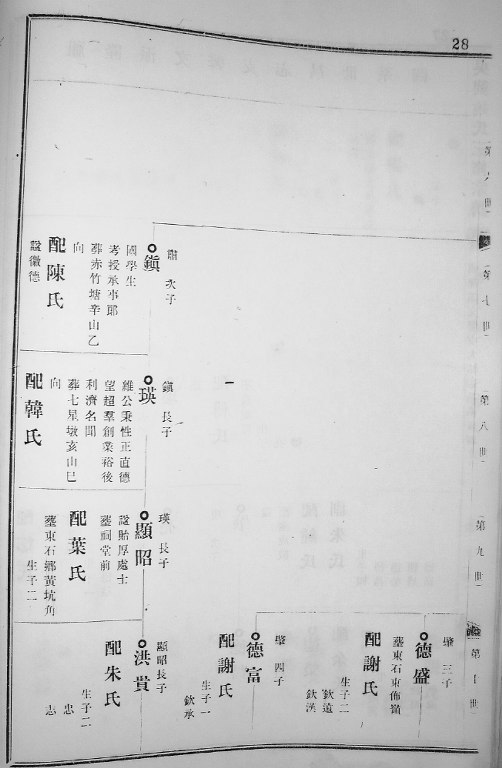 28
第六世
第七世
第八世
第九世
第十世
肅 次子
鎮
國學生
考授承事郎
葬赤竹塘辛山乙
向
配陳氏
諡徽德
鎮 長子
瑛
維公秉性正直德
望超羣創業裕後
利濟名聞
葬七星墩亥山巳
向
配韓氏
瑛 長子
顯昭
諡貽厚處士
葬祠堂前
配葉氏
葬東石鄉黃坑角
生子二
肇 三子
德盛
葬東石東佈嶺
配謝氏
生子二
欽遠
欽漢
肇 四子
德富
配謝氏
生子一
欽承
顯昭長子
洪貴
配朱氏
生子二
忠
志